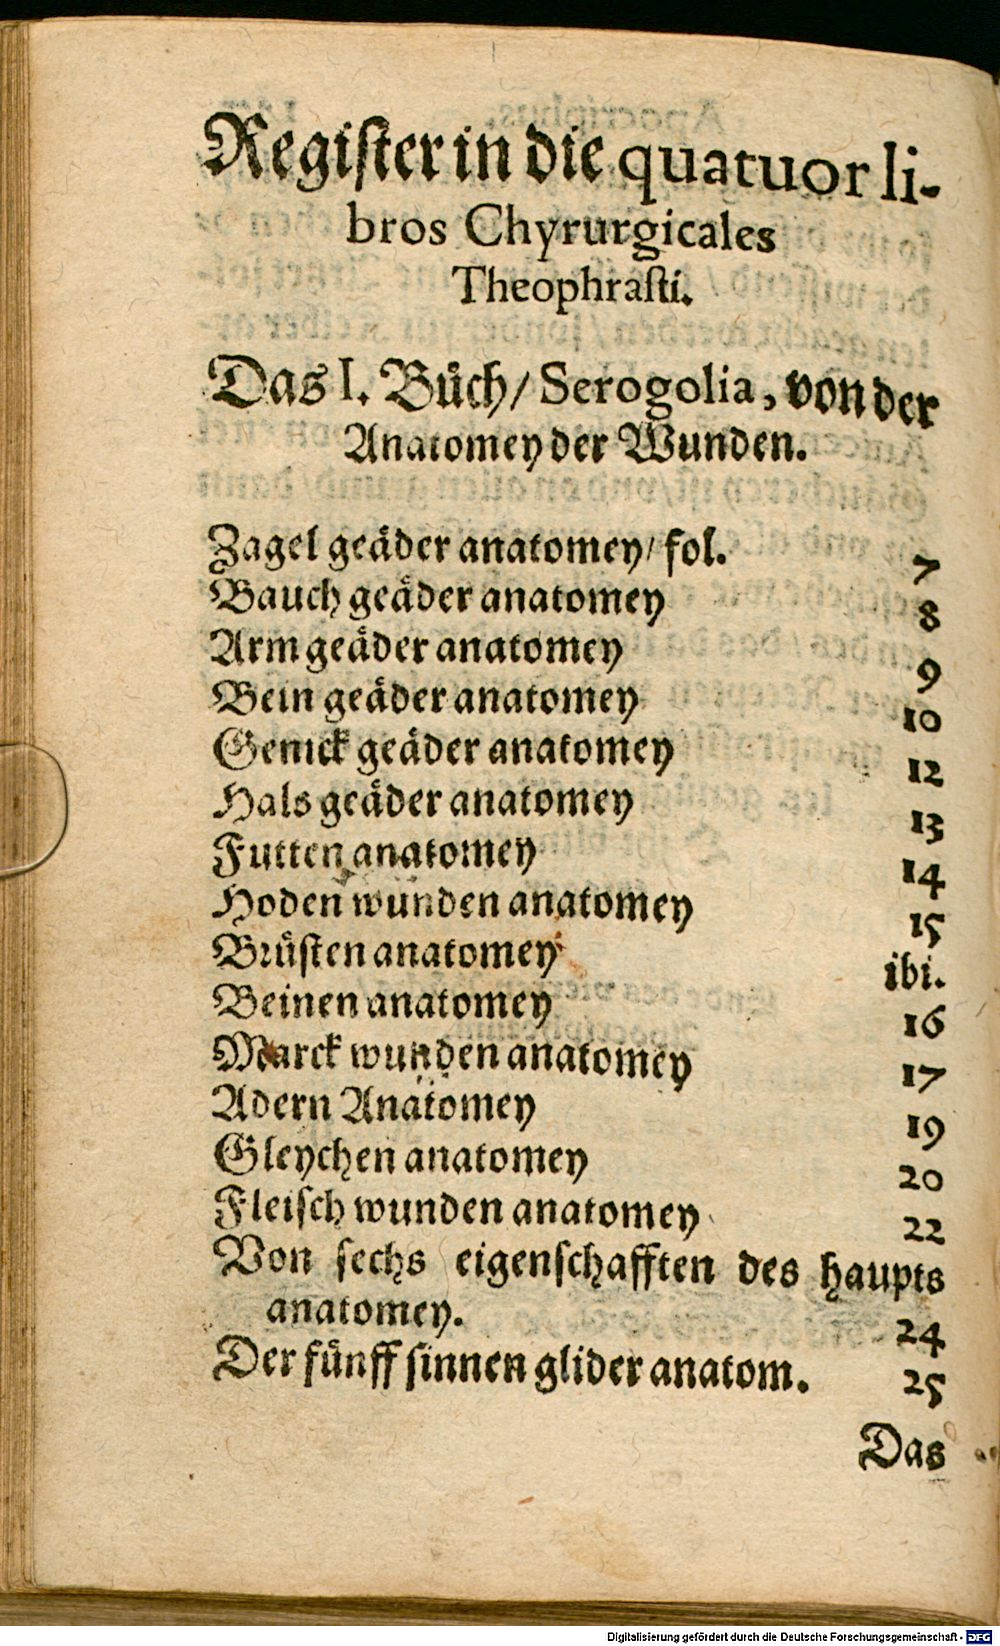 Register in die quatuor li-
bros Chyrurgicales
Theophrasti.
Das I. Bůch/ Serogolia, von der
Anatomey der Wunden.
Zagel geäder anatomey/ fol. 7
Bauch geäder anatomey 8
Arm geäder anatomey 9
Bein geäder anatomey 10
Genick geäder anatomey 12
Hals geäder anatomey 13
Futten anatomey 14
Hoden wunden anatomey 15
Brüsten anatomey ibi.
Beinen anatomey 16
Marck wunden anatomey 17
Adern Anatomey 19
Gleychen anatomey 20
Fleisch wunden anatomey 22
Von sechs eigenschafften des haupts
anatomey. 24
Der fünff sinnen glider anatom. 25
Das
Digitalisierung gefördert durch die Deutsche Forschungsgemeinschaft - DFG